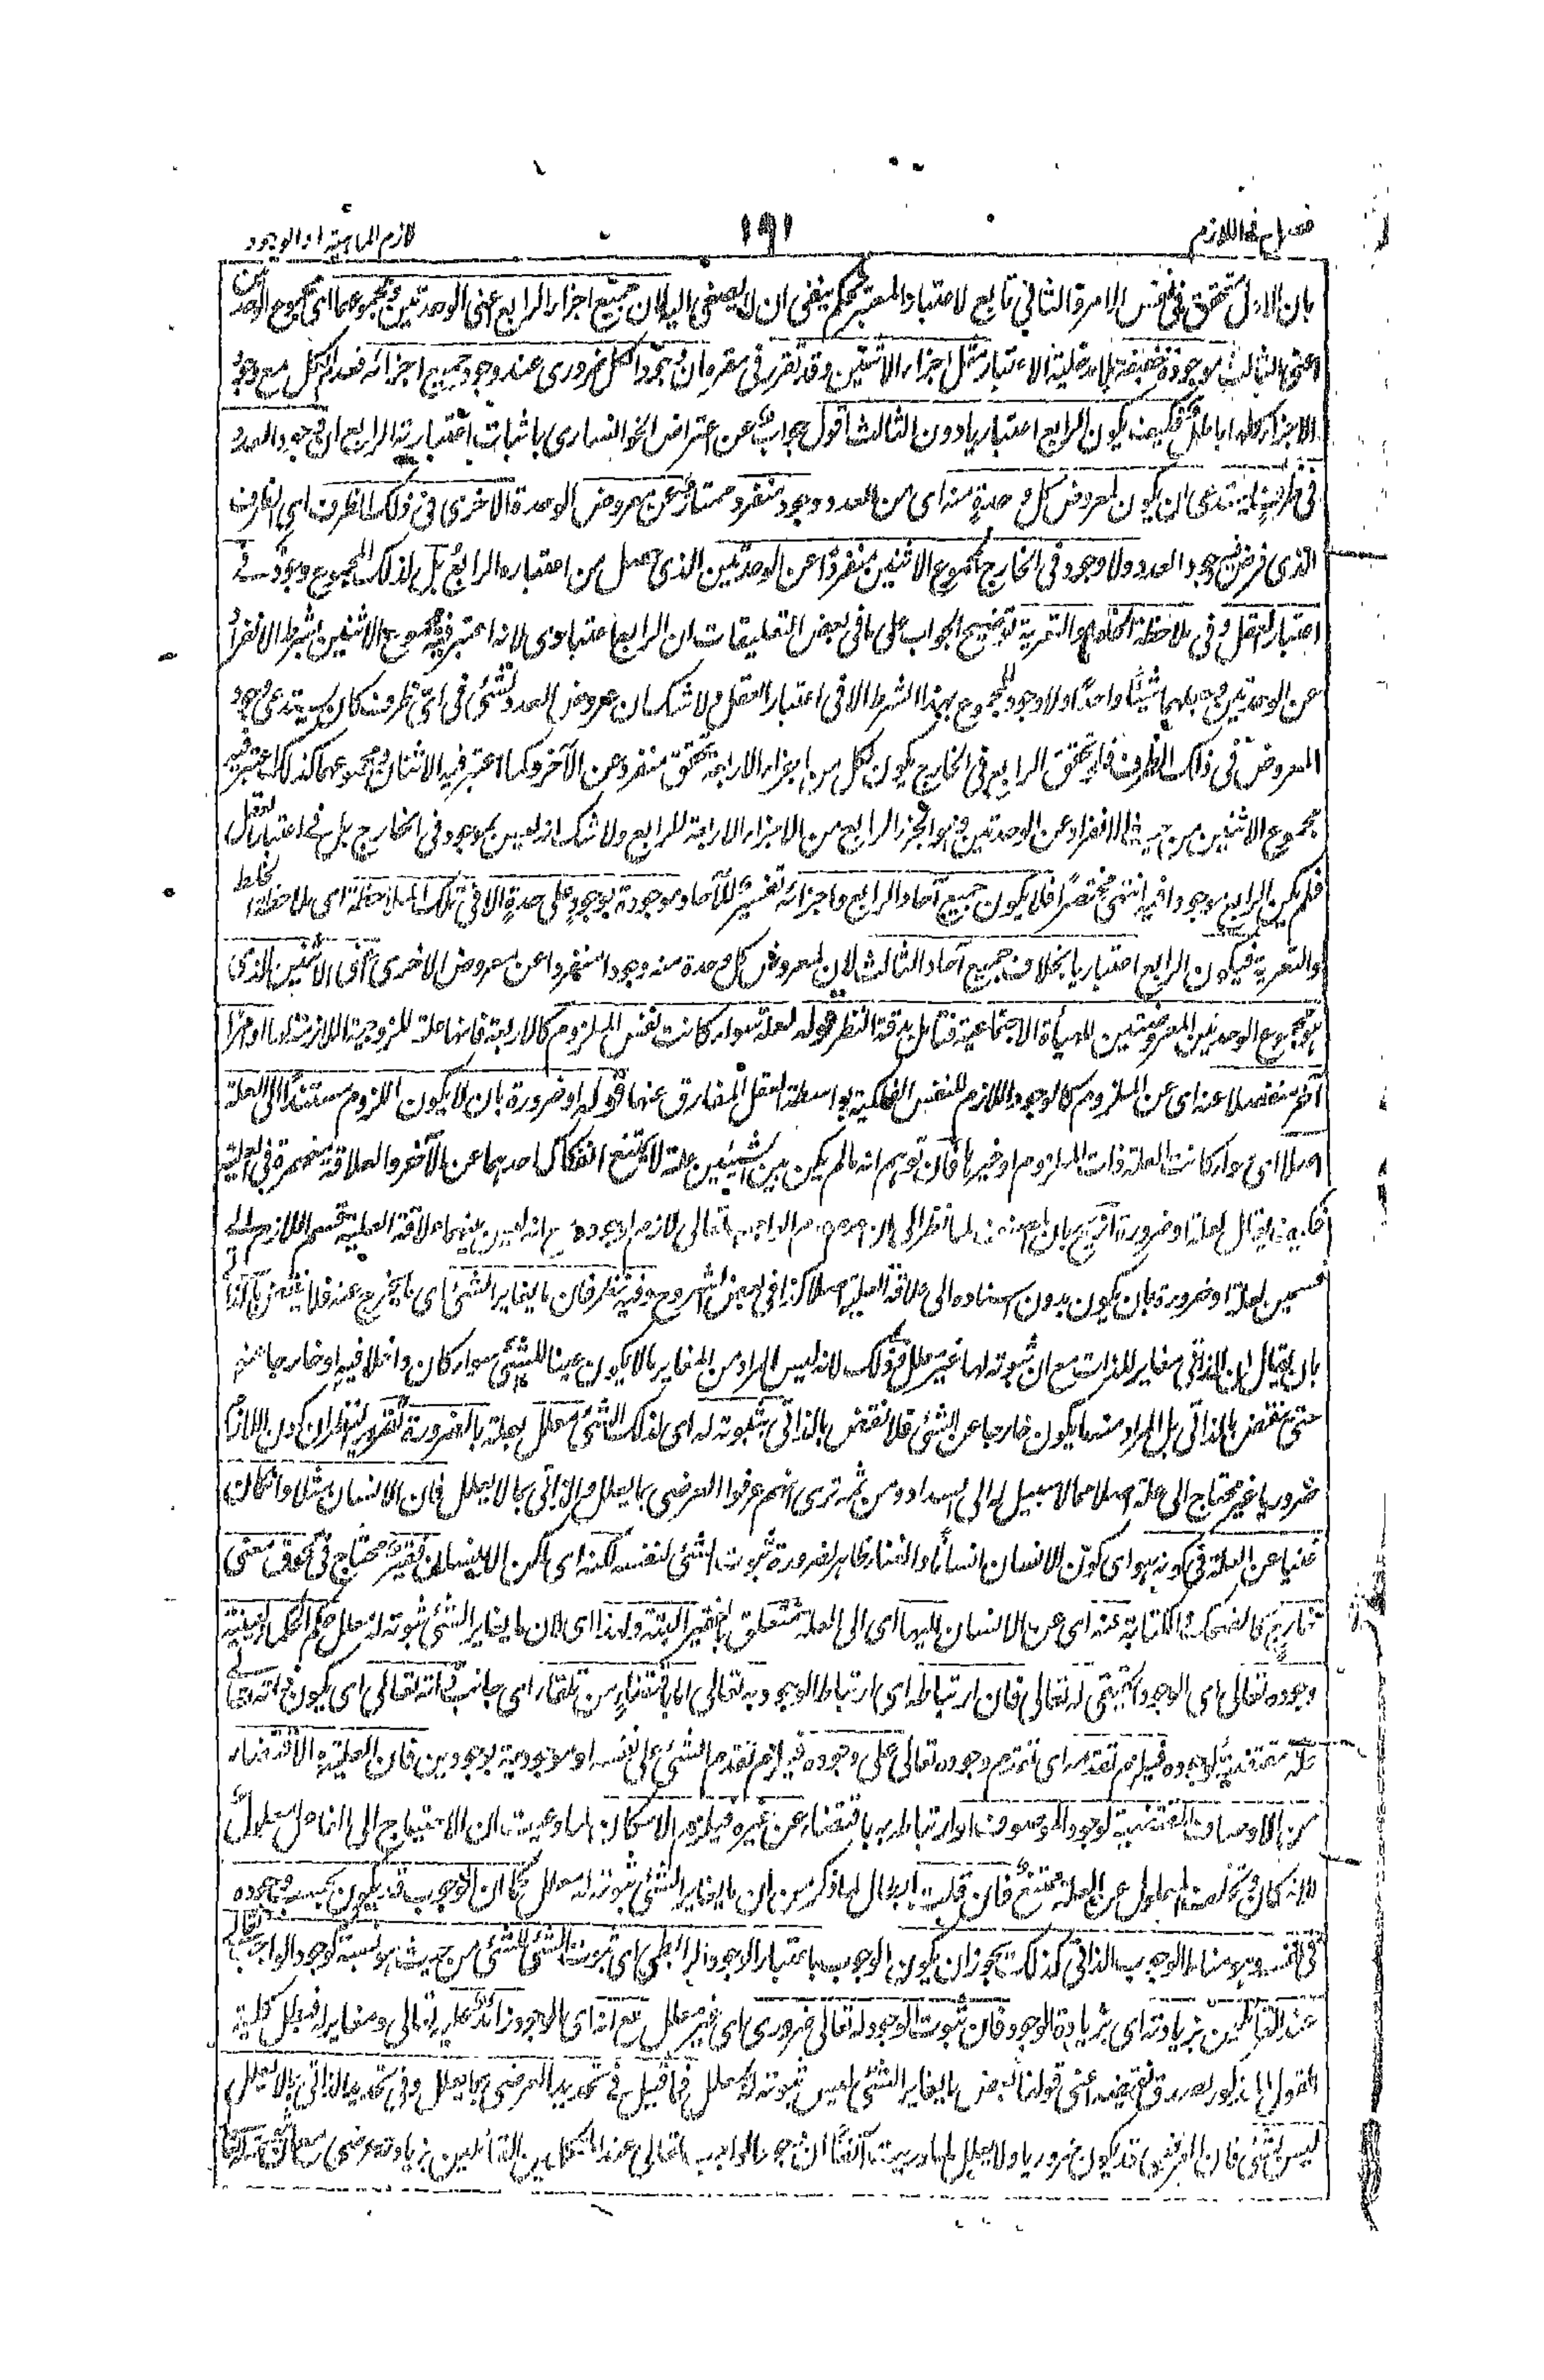 فصل فى اللازم
١٩١
لازم الماهية او الوجود
بان الاول متحقق فى نفس الامر والثانى تابع لاعتبار المعتبر تحكم ينبغى ان لا يصغى اليه لان جميع اجزاء الرابع اعنى الوحدتين ومجموعهما اى مجموع الوحدتين
اعنى الثالث موجودة حقيقة بلا مدخلية الاعتبار مثل اجزاء الاثنين وقد تقرر فى مقره ان وجود الكل ضرورى عند وجود جميع اجزائه فعدم الكل مع وجود
الاجزاء كلها باطل فكيف يكون الرابع اعتباريا دون الثالث اقول جواب عن اعتراض الخوانسارى باثبات اعتبارية الرابع ان وجود العدد
فى ظرف يستدعى ان يكون لمعروض كل وحدة منه اى من العدد وجود منفرد ممتاز عن معروض الوحدة الاخرى فى ذلك الظرف اى الظرف
الذى فرض فيه وجود العدد ولا وجود فى الخارج لمجموع الاثنين منفردا عن الوحدتين الذى حصل من اعتباره الرابع بل لذلك المجموع وجود فى
اعتبار العقل وفى ملاحظة الخلط والتعرية توضيح الجواب على ما فى بعض التعليقات ان الرابع اعتبارى لانه اعتبر فيه مجموع الاثنين بشرط الانفراد
عن الوحدتين وجعلهما شيئا واحدا ولا وجود للمجموع بهذا الشرط الا فى اعتبار العقل ولا شك ان عروض العدد لشئ فى اى ظرف كان يستدعى وجود
المعروض فى ذلك الظرف فلو تحقق الرابع فى الخارج يكون لكل من اجزاء الاربعة تحقق منفرد عن الآخر وكما اعتبر فيه الاثنان ومجموعهما كذلك اعتبر فيه
مجموع الاثنين من حيث الانفراد عن الوحدتين وهو الجزء الرابع من الاجزاء الاربعة للرابع ولا شك انه ليس بموجود فى الخارج بل فى اعتبار العقل
فلم يكن الرابع موجودا فيه انتهى مختصرا فلا يكون جميع آحاد الرابع واجزائه تفسير للآحاد موجودة بوجود على حدة الا فى تلك الملاحظة اى ملاحظة الخلط
والتعرية فيكون الرابع اعتباريا بخلاف جميع آحاد الثالث لان لمعروض كل وحدة منه وجودا منفردا عن معروض الاخرى فان الاثنين الذى
هو مجموع الوحدتين المعروضتين للهيأة الاجتماعية فتأمل بدقة النظر قوله لعلة سواء كانت نفس الملزوم كالاربعة فانها علة للزوجية اللازمة لها او امرا
آخر منفصلا عنه اى عن الملزوم كالوجود اللازم للنفس الفلكية بواسطة العقل المفارق عنها قوله او ضرورة بان لا يكون اللزوم مستندا الى العلة
اصلا اى سواء كانت العلة ذات الملزوم او غيرها فان توهم انه ما لم يكن بين الشيئين علة لا يمتنع انفكاك احدهما عن الآخر والعلاقة منحصرة فى العلية
فكيف يقال لعلة او ضرورة ازيح بان بعضهم لما نظر الى ان مفهوم الواجب تعالى لازم لوجوده مع انه ليس بينهما علاقة العلية قسم اللازم الى
قسمين لعلة او ضرورة بان يكون بدون استناده الى علاقة العلية اصلا كذا فى بعض الشروح وفيه نظر فان ما يغاير الشئ اى ما يخرج عنه فلا ينتقض بالذاتى
بان يقال ان الذاتى مغاير للذات مع ان ثبوته لها غير معلل وذلك لانه ليس المراد من المغاير ما لا يكون عينا للشئ سواء كان داخلا فيه او خارجا عنه
حتى ينتقض بالذاتى بل المراد منه ما يكون خارجا عن الشئ فلا نقض بالذاتى ثبوته له اى لذلك الشئ معلل بعلة بالضرورة تقرير النظر ان كون اللازم
ضروريا غير محتاج الى علة اصلا مما لا سبيل له الى السداد ومن ثمه ترى انهم عرفوا العرضى بما يعلل والذاتى بما لا يعلل فان الانسان مثلا وان كان
غنيا عن العلة فى كونه هو اى كون الانسان انسانا والغناء ظاهر لضرورة ثبوت الشئ لنفسه لكنه اى لكن الانسان فقير محتاج فى لحوق معنى
خارج كالضحك والكتابة عنه اى عن الانسان اليها اى الى العلة متعلق بالفقير البتة ولهذا اى لان ما يغاير الشئ ثبوته له معلل حكم الحكماء بعينية
وجوده تعالى اى الوجود الحقيقى له تعالى فان ارتباطه اى ارتباط الوجود به تعالى اما باقتضاء من تلقاء اى جانب ذاته تعالى اى يكون ذاته تعالى
علة مقتضية لوجوده فيلزم تقدمه اى تقدم وجوده تعالى على وجوده فيلزم تقدم الشئ على نفسه او موجودية بوجودين فان العلية والاقتضاء
من الاوصاف المقتضية لوجود الموصوف او ارتباطه به باقتضاء عن غيره فيلزم الامكان لما وعيت ان الاحتياج الى الفاعل معلول
للامكان وتخلف المعلول عن العلة ممتنع فان قلت ابطال لما ذكر من ان ما يغاير الشئ ثبوته له معلل كما ان الوجوب قد يكون بحسب وجوده
فى نفسه وهو مناط الوجوب الذاتى كذلك يجوز ان يكون الوجوب باعتبار الوجود الرابطى اى ثبوت الشئ للشئ من حيث هو نسبة كوجود الواجب تعالى
عند القائلين بزيادته اى بزيادة الوجود فان ثبوت الوجود له تعالى ضرورى اى غير معلل مع انه اى الوجود زائد عليه تعالى ومغاير له فبطل كلية
القول المذكور لصدق نقيضه اعنى قولنا بعض ما يغاير الشئ ليس ثبوته له معلل فما قيل فى تحديد العرضى بما يعلل وفى تحديد الذاتى بما لا يعلل
ليس بشئ فان العرضى قد يكون ضروريا ولا يعلل لما دريت آنفا ان وجود الواجب تعالى عند المتكلمين القائلين بزيادته عرضى مع ان ثبوته له تعالى